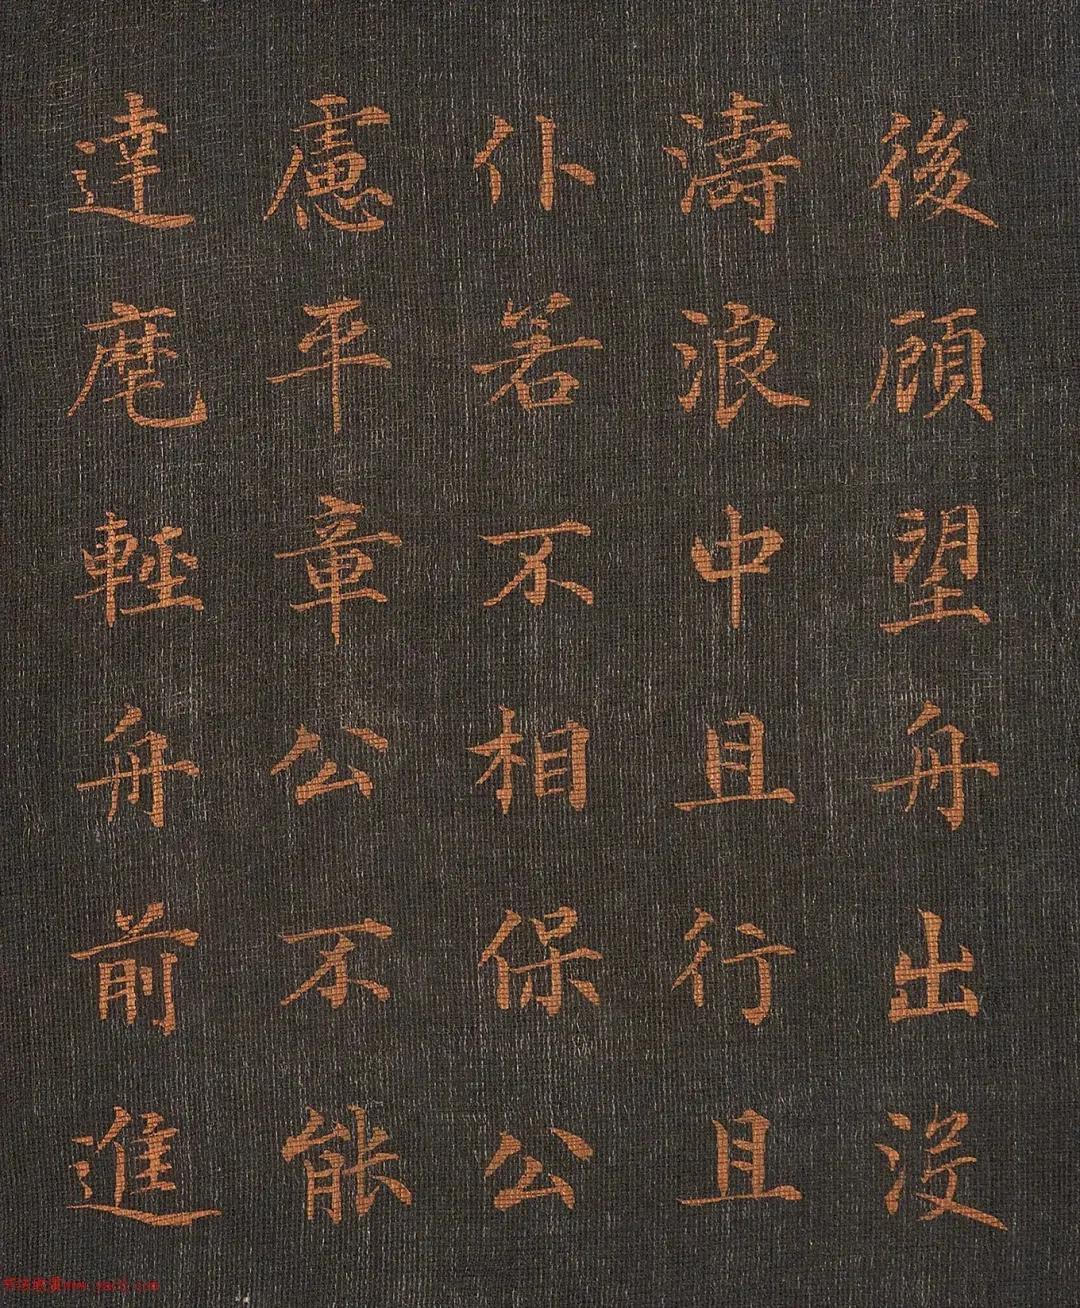 後顧望舟出沒
濤浪中且行且
仆若不相保公
慮平章公不能
達麾輕舟前進